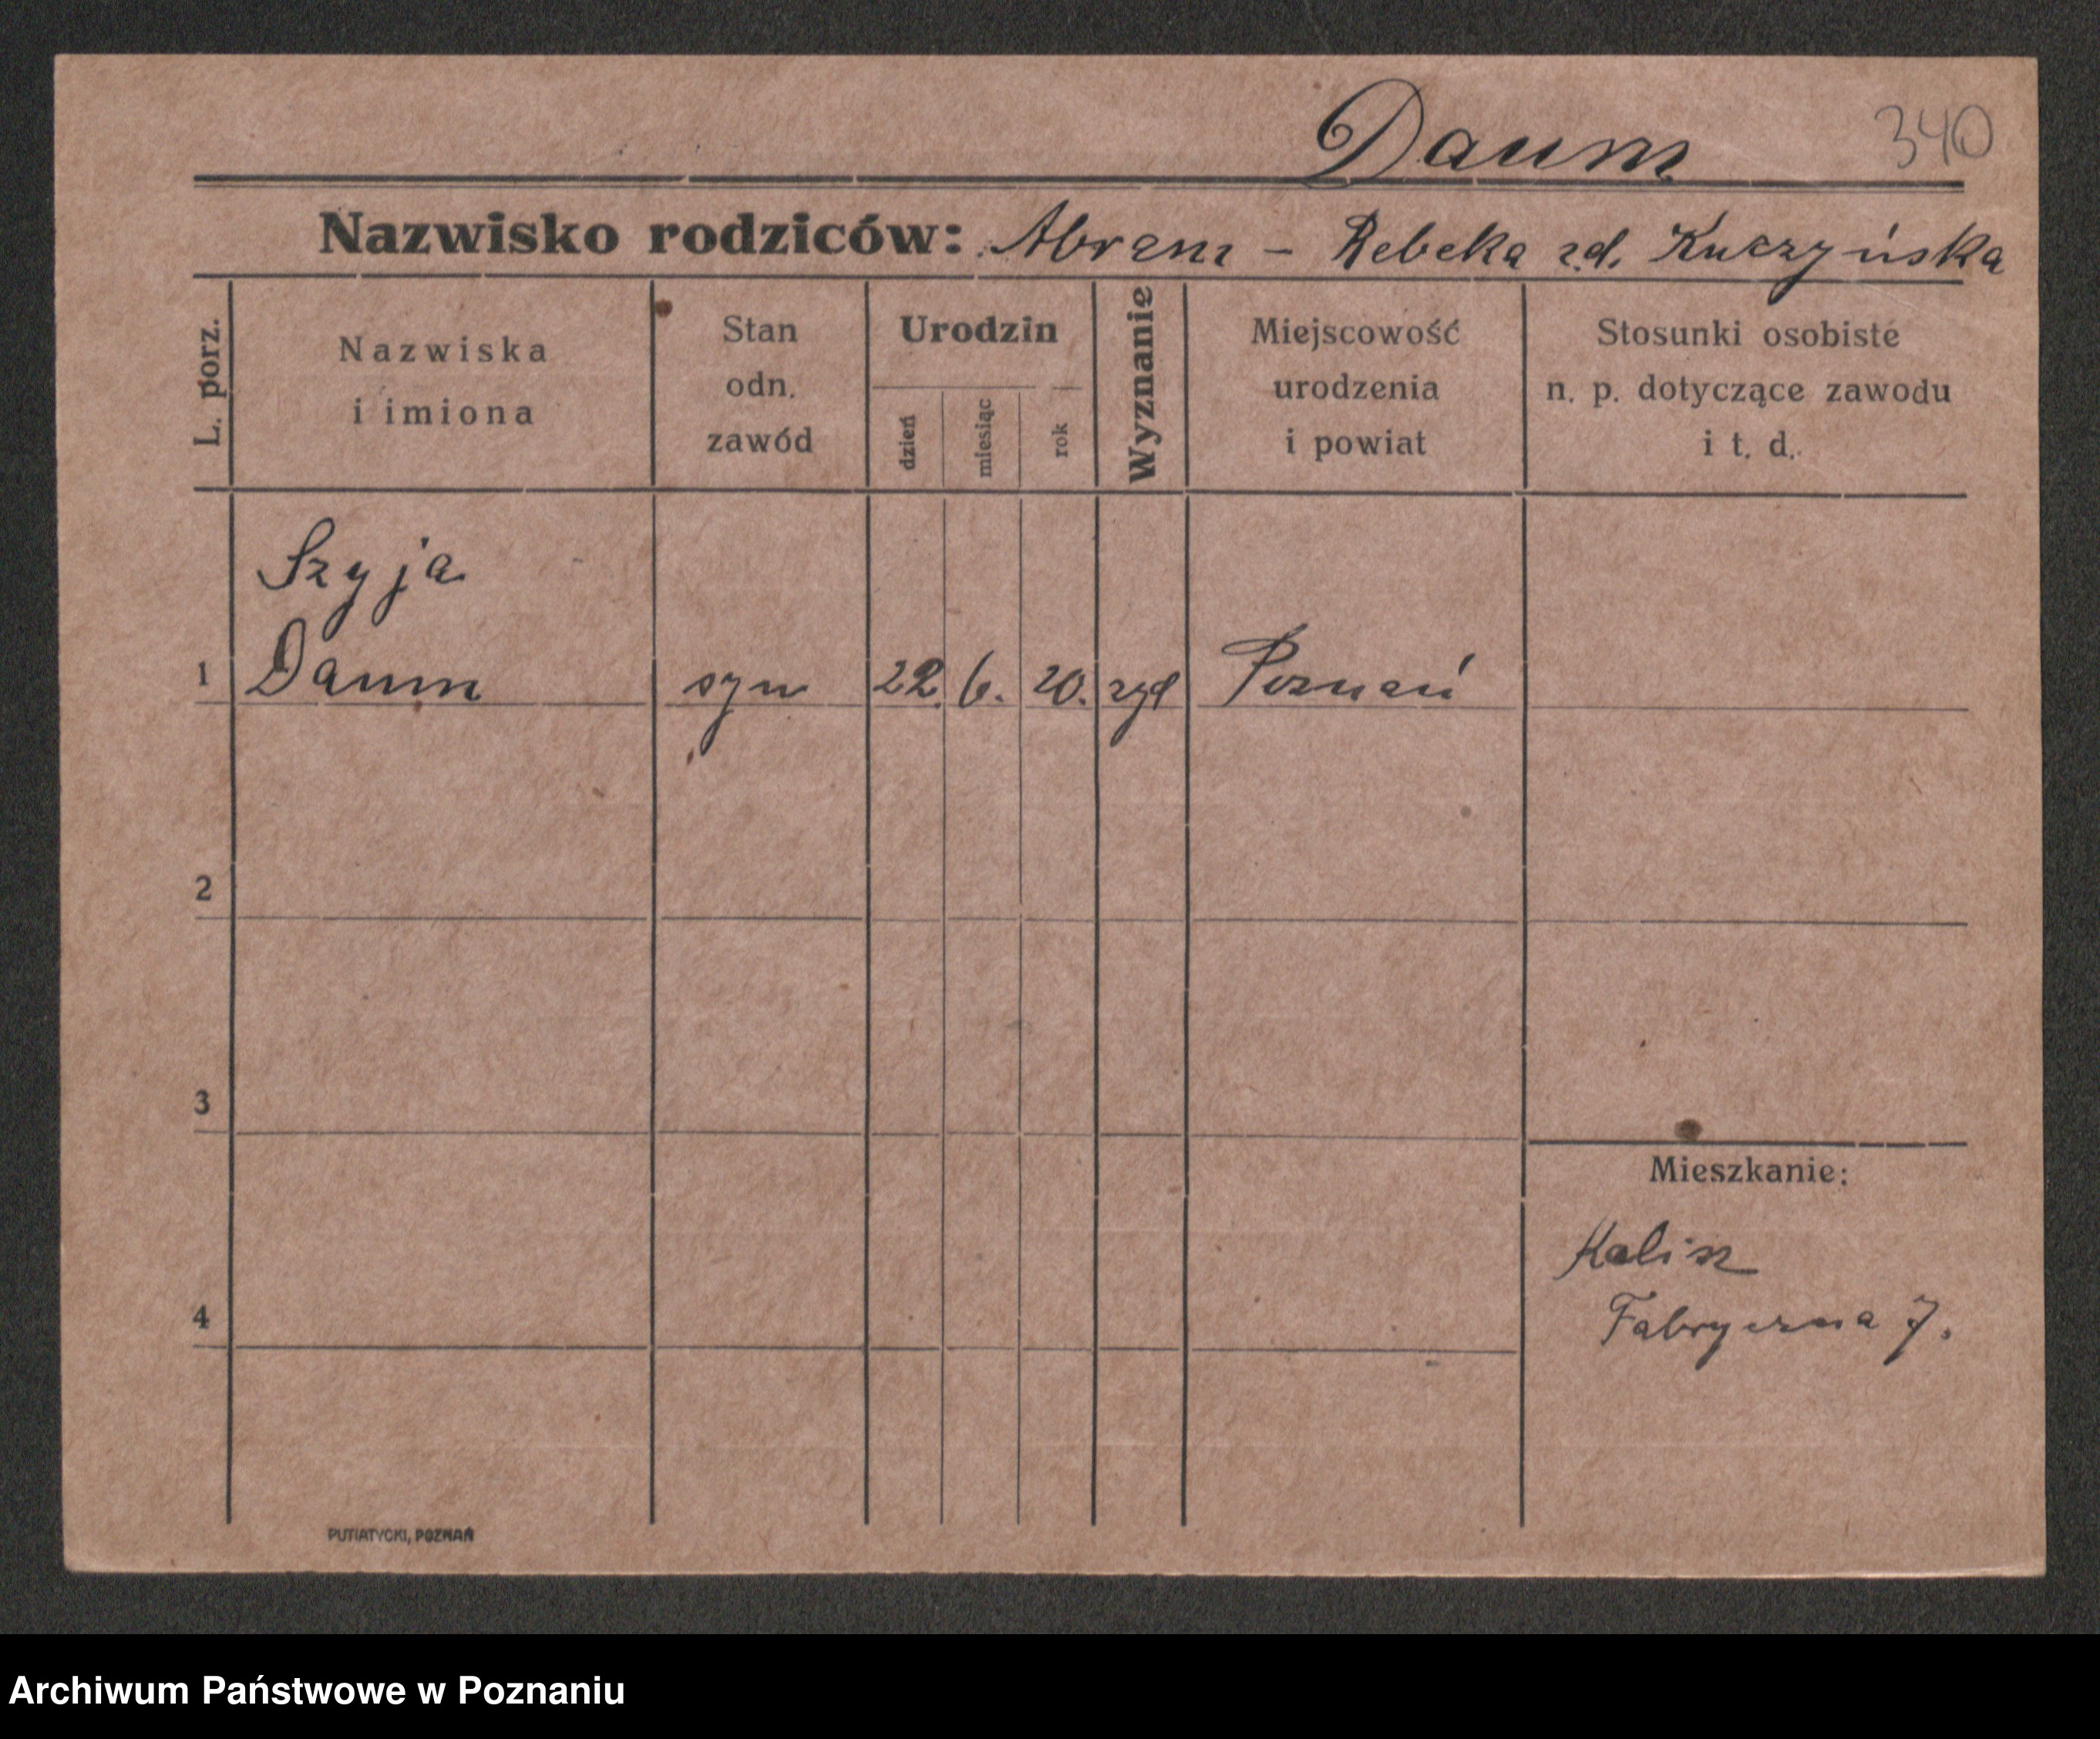 Daum 340
Nazwisko rodziców: Abram - Rebeka zd. Kuczyńska
L. porz.
Nazwiska
i imiona
Stan
odn.
zawód
Urodzin
dzień
miesiąc
rok
Wyznanie
Miejscowość
urodzenia
i powiat
Stosunki osobiste
n. p. dotyczące zawodu
i t. d.
Szyja
1 Daum syn 22. 6. 20. żyd Poznań
2
3
4
Mieszkanie:
Kalisz
Fabryczna 7.
PUTIATYCKI, POZNAŃ
Archiwum Państwowe w Poznaniu